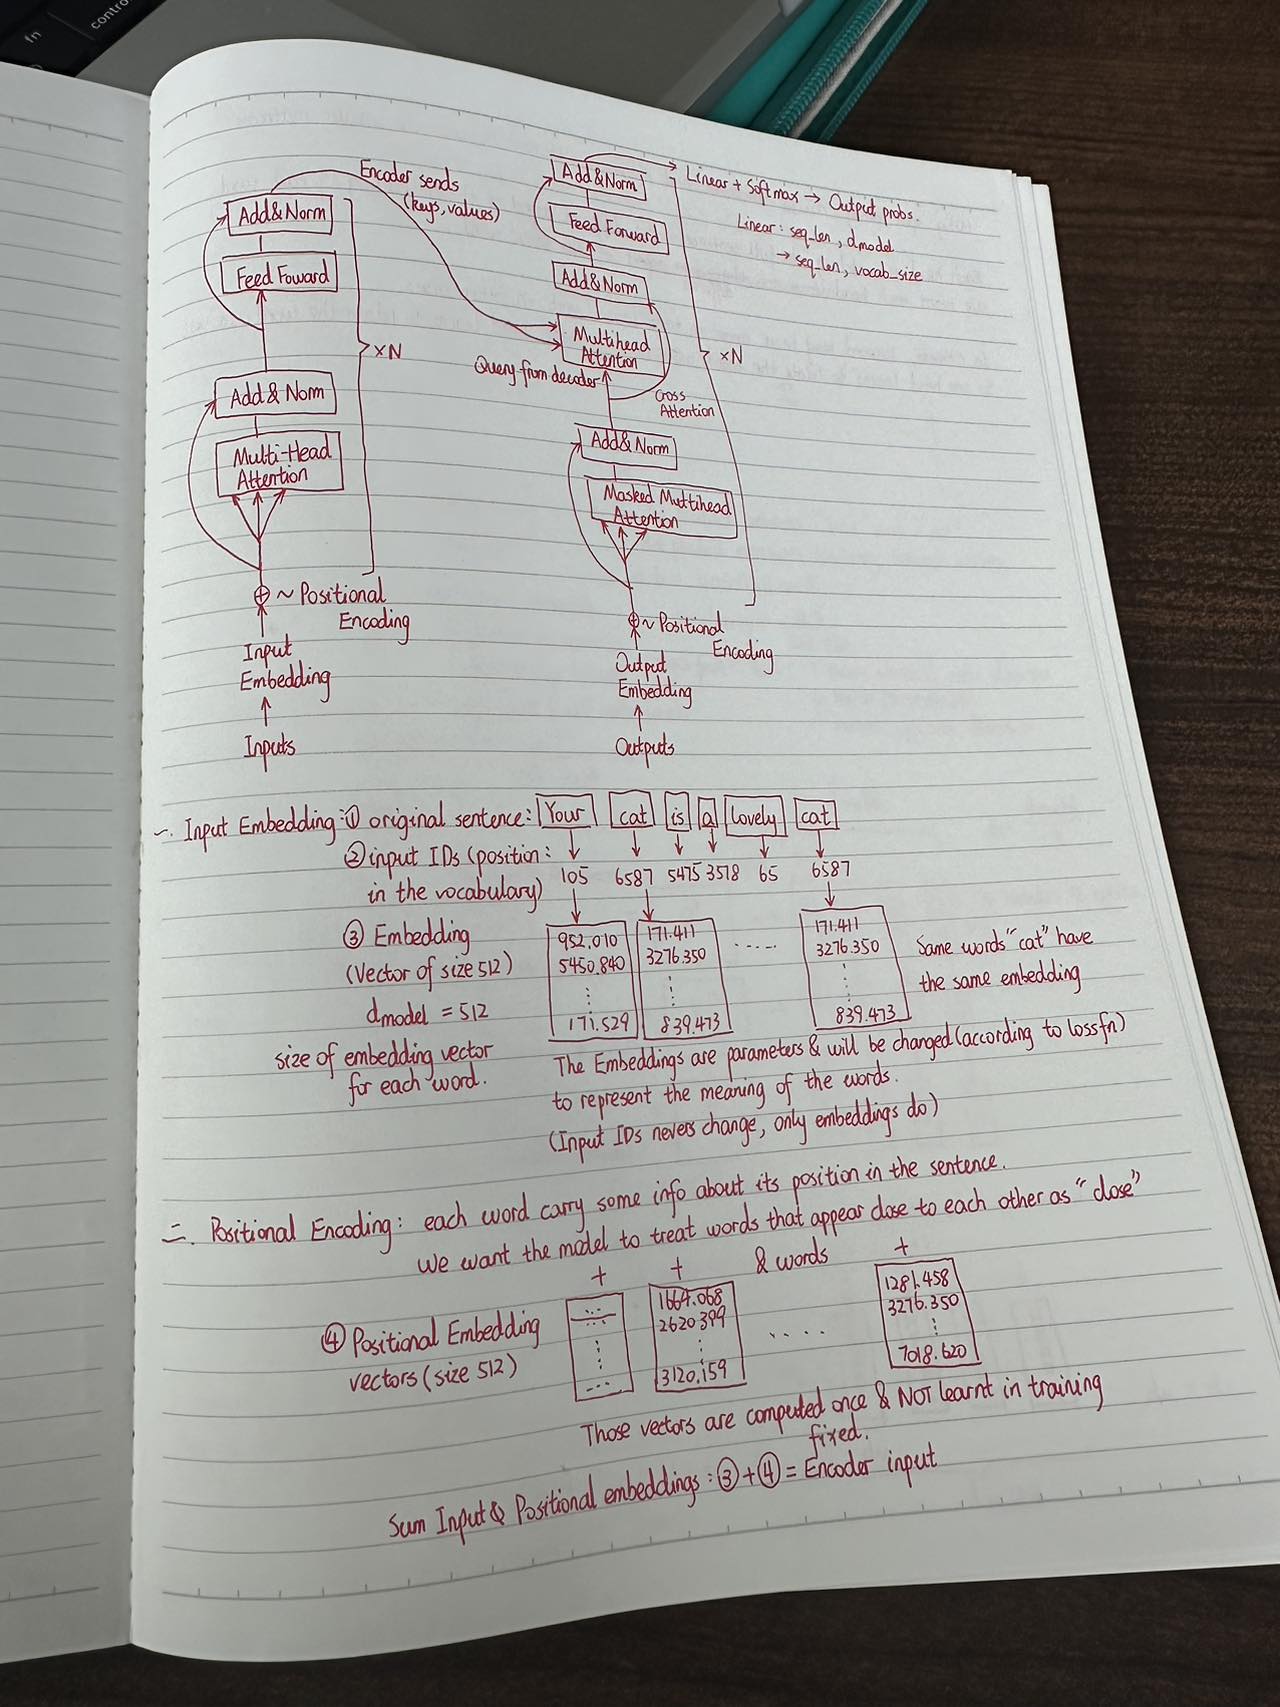 fn
contro
Encoder sends
(keys, values)
Add&Norm
Feed Foward
×N
Add & Norm
Multi-Head
Attention
~ Positional
Encoding
Input
Embedding
Inputs
Add&Norm
Feed Forward
Add&Norm
Multihead
Attention
Query from decoder
Cross
Attention
×N
Add&Norm
Masked Multihead
Attention
~ Positional
Encoding
Output
Embedding
Outputs
→ Linear + Softmax → Output probs.
Linear: seq_len, dmodel
→ seq_len, vocab_size
一. Input Embedding: ① original sentence: Your cat is a lovely cat
② input IDs (position: 105 6587 5475 3578 65 6587
in the vocabulary)
③ Embedding
(Vector of size 512)
dmodel = 512
size of embedding vector
for each word.
952.010 171.411 ..... 171.411
5450.840 3276.350 3276.350
171.529 839.473 839.473
Same words "cat" have
the same embedding
The Embeddings are parameters & will be changed (according to lossfn)
to represent the meaning of the words.
(Input IDs nevers change, only embeddings do)
二. Positional Encoding: each word carry some info about its position in the sentence.
We want the model to treat words that appear close to each other as "close"
+ + & words +
④ Positional Embedding
vectors (size 512)
1664.068 1281.458
2620.399 .... 3276.350
3120.159 7018.620
Those vectors are computed once & NOT learnt in training
fixed.
Sum Input & Positional embeddings: ③+④ = Encoder input